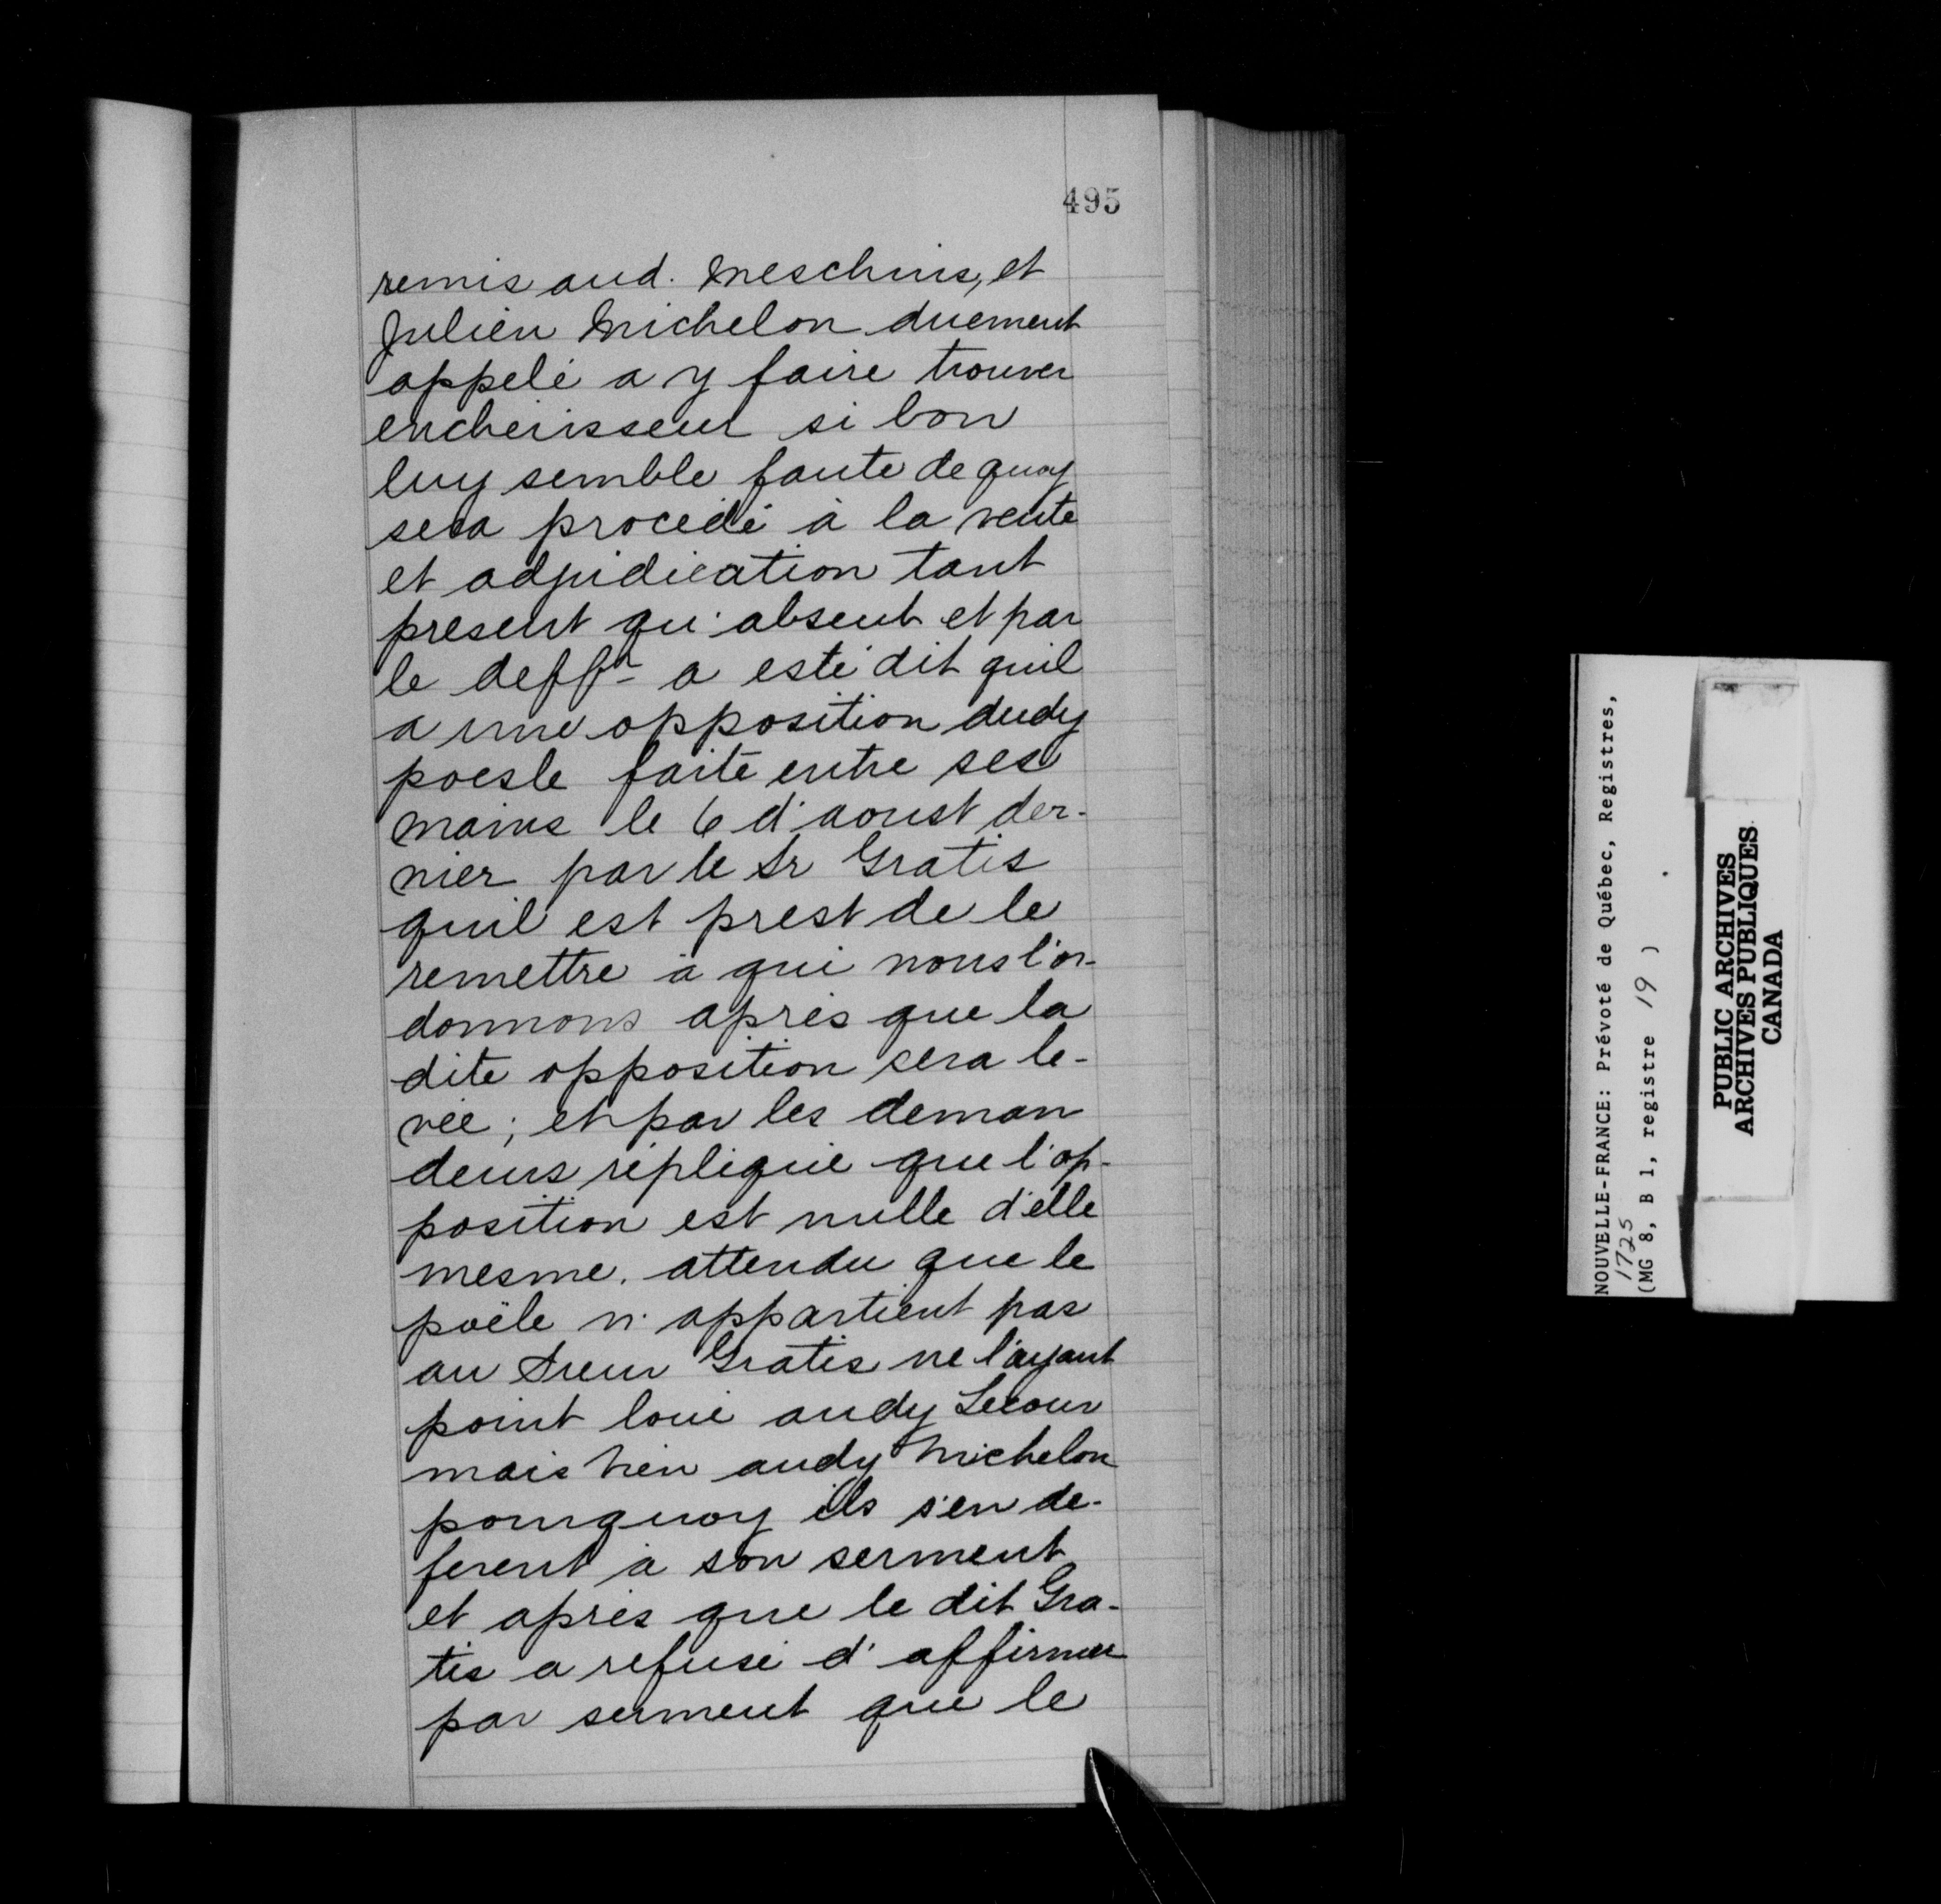 495
remis aud. Meschins, et
Julien Michelon duement
appelé a y faire trouver
encherisseur si bon
luy semble faute de quoy
sera procédé à la vente
et adjudication tant
present qu'absent et par
le deffr a esté dit quil
a une opposition dudy
poesle faite entre ses
mains le 6 d'aoust der-
nier par le Sr Gratis
quil est prest de le
remettre à qui nous l'or-
donnons après que la
dite opposition sera le-
vée; et par les deman
deurs répliqué que l'op-
position est nulle d'elle
mesme. attendu que le
poële n'appartient pas
au Sieur Gratis ne l'ayant
point loué audy Lecour
mais bien audy Michelon
pourquoy ils s'en de-
ferent à son serment
et après que le dit Gra-
tis a refusé d'affirmer
par serment que le
NOUVELLE-FRANCE: Prévoté de Québec, Registres,
1725
(MG 8, B 1, registre 19 )
PUBLIC ARCHIVES
ARCHIVES PUBLIQUES
CANADA